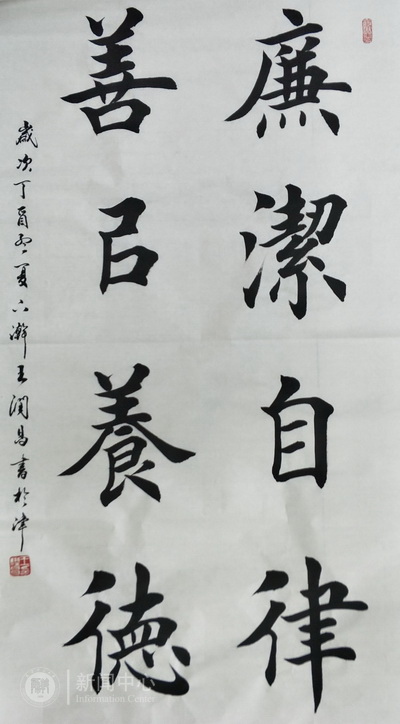 廉潔自律
善己養德
歲次丁酉夏下澣王潤昌書於津
新闻中心
Information Center